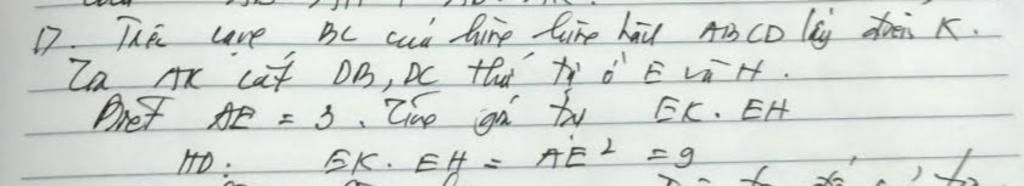 17. Trên cạnh BC của hình bình hành ABCD lấy điểm K.
Tia AK cắt DB, DC thứ tự ở E và H.
Biết AE = 3. Tính giá trị EK. EH
HD: EK. EH = AE² = 9